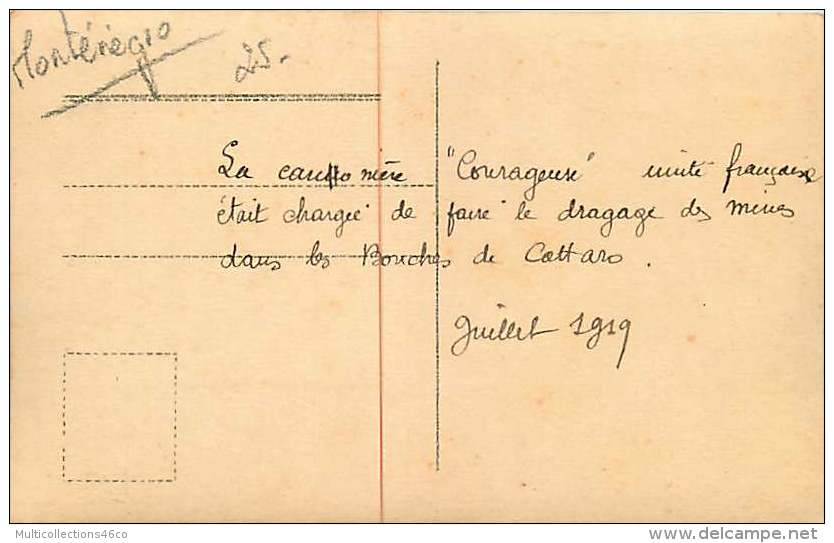 Monténégro
25.-
La canonnière "Courageuse" unité française
était chargée de faire le dragage des mines
dans les Bouches de Cattaro.
Juillet 1919
Multicollections46co
www.delcampe.net